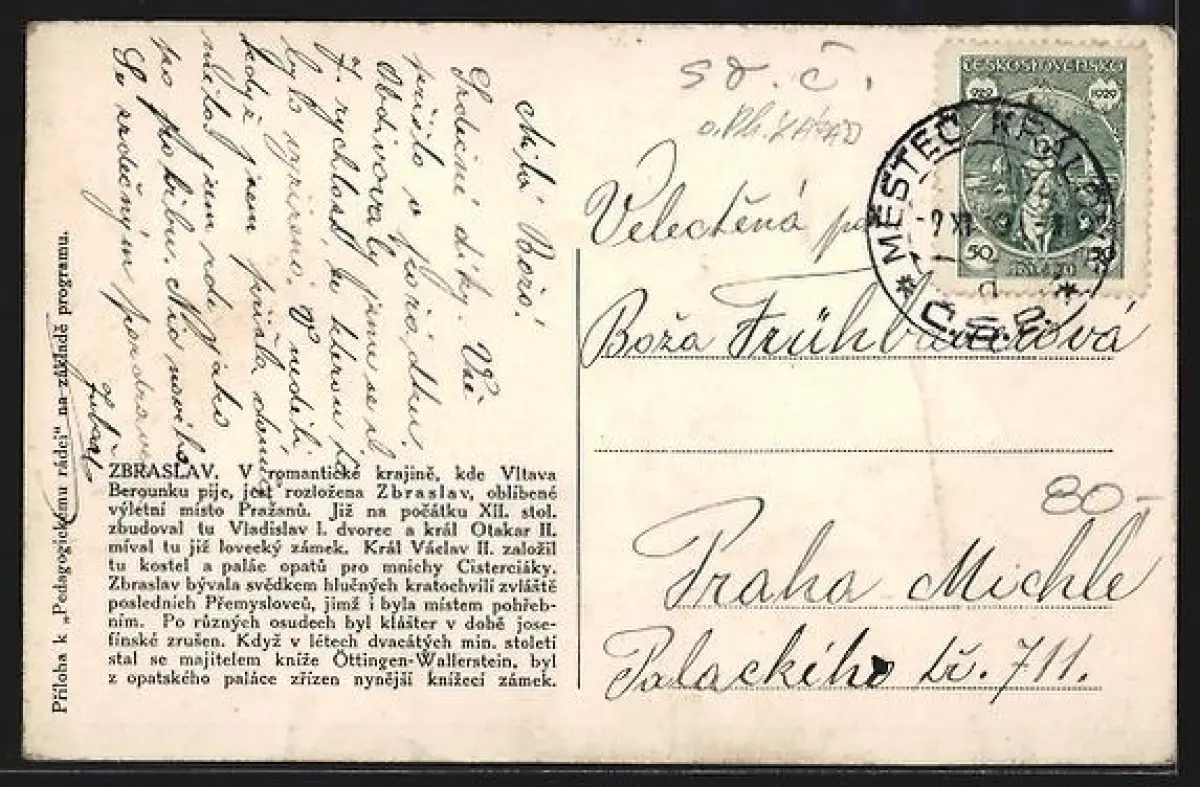 Milá Božo!
Srdečné díky. Vše
přišlo v pořádku.
Obdivovaly jsme se i
rychlosti, se kterou to
bylo vyřízeno. V neděli
když jsem přišla domů
měla jsem rády jako
po Nic nového
Se srdečným pozdravem
ZBRASLAV. V romantické krajině, kde Vltava
Berounku pije, jest rozložena Zbraslav, oblíbené
výletní místo Pražanů. Již na počátku XII. stol.
zbudoval tu Vladislav I. dvorec a král Otakar II.
míval tu již lovecký zámek. Král Václav II. založil
tu kostel a palác opatů pro mnichy Cisterciáky.
Zbraslav bývala svědkem hlučných kratochvílí zvláště
posledních Přemyslovců, jimž i byla místem pohřeb-
ním. Po různých osudech byl klášter v době jose-
fínské zrušen. Když v létech dvacátých min. století
stal se majitelem kníže Öttingen-Wallerstein, byl
z opatského paláce zřízen nynější knížecí zámek.
Příloha k „Pedagogickému rádci" na základě programu.
SD. Č.
ČESKOSLOVENSKO
929 1929
50 50
MĚSTEC KRÁLOVÉ
ČSR
Velectěná
Boža Frühbauerová
80-
Praha Michle
Palackého tř. 711.